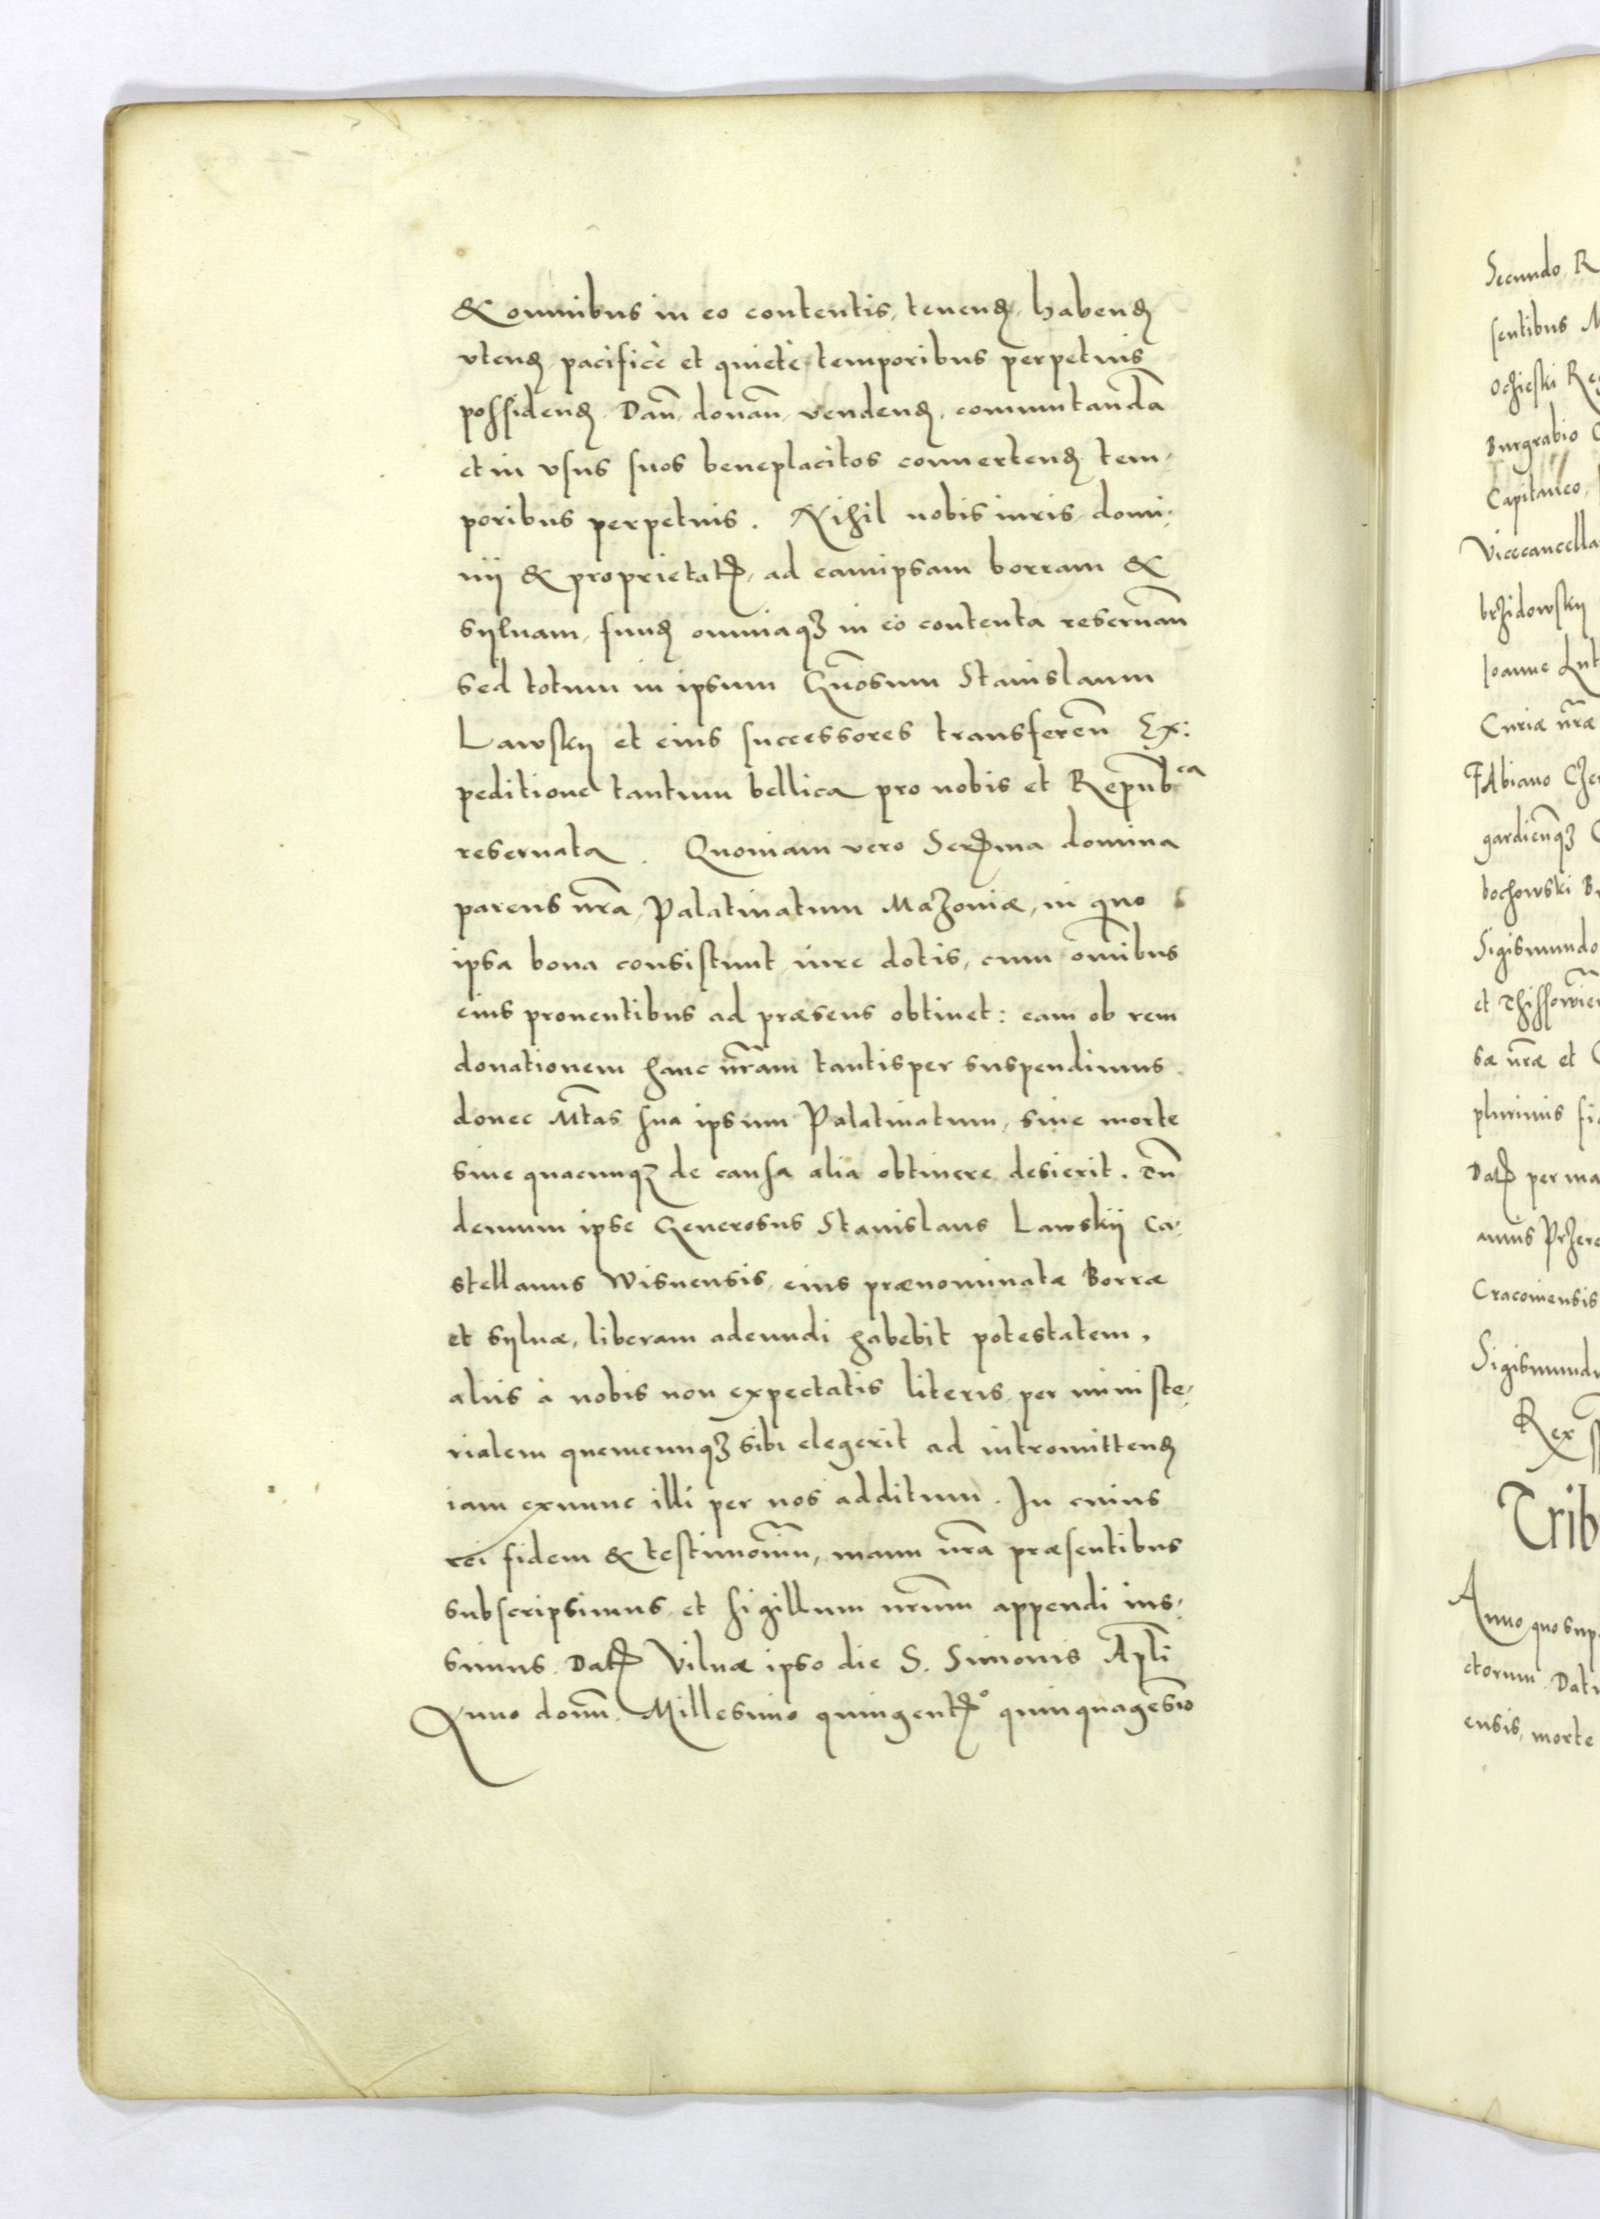 & omnibus in eo contentis, tenend, habend
vtend, pacificè et quietè temporibus perpetuis
possidend. Dan̄, donan̄, vendend, commutanda
et in vsus suos beneplacitos conuertend tem-
poribus perpetuis. Nihil nobis iuris domi-
nij & proprietatꝭ, ad eamipsam borram &
syluam, fund omniaqꝫ in eo contenta reseruan̄
sed totum in ipsum Gn̄osum Stanislaum
Lawskij et eius successores transferen̄ Ex:
peditione tantum bellica pro nobis et Repub^ca
reseruata. Quoniam vero Serꝭma domina
parens nr̄a, Palatinatum Mazoniæ, in quo
ipsa bona consistunt iure dotis, cum om̄ibus
eius prouentibus ad præsens obtinet: eam ob rem
donationem hanc nr̄am tantisper suspendimus
donec Mtas̄ sua ipsum Palatinatum, siue morte
siue quacunqꝫ de causa alia obtinere desierit. Tn̄
demum ipse Generosus Stanislaus Lawskij Ca-
stellanus Wisnensis, eius prænominatæ Borræ
et syluæ, liberam adeundi habebit potestatem,
alijs à nobis non expectatis literis, per ministe-
rialem quemcunqꝫ sibi elegerit ad intromittend
iam exnunc illi per nos additum. In cuius
rei fidem & testimoniū, manu nr̄a præsentibus
subscripsimus, et sigillum nr̄um appendi ius-
simus. Datꝭ Vilnæ ipso die S. Simonis Apl̄i
Anno domn̄. Millesimo quingentꝭ^o quinquagesīo
Secundo, R
sentibus M
Oczieski Re
Burgrabio C
Capitaneo,
Vicecancella
brzidowskij
Joanne Lut
Curiæ nr̄æ
FAbiano Cze
gardien̄qꝫ C
bochowski B
Sigismundo
sæ nr̄æ et
plurimis fi
Datꝭ per ma
anus Przere
Cracouiensis
Sigismund
Rex
Trib
Anno quo sup
ctorum. Dat
ensis, morte